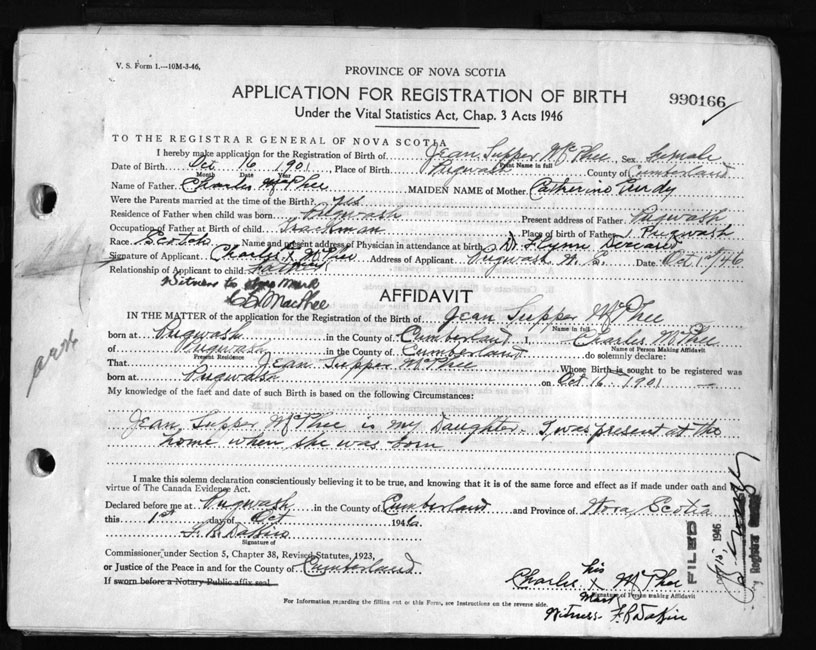 V. S. Form 1.—10M-3-46.
PROVINCE OF NOVA SCOTIA
APPLICATION FOR REGISTRATION OF BIRTH
990166
Under the Vital Statistics Act, Chap. 3 Acts 1946
TO THE REGISTRAR GENERAL OF NOVA SCOTIA
I hereby make application for the Registration of Birth of Jean Supper McPhee, Sex female
Print Name in full
Date of Birth Oct 16 1901, Place of Birth Pugwash County of Cumberland
Month Date Year
Name of Father Charles McPhee MAIDEN NAME of Mother Catherine
Were the Parents married at the time of Birth? yes
Residence of Father when child was born Pugwash Present address of Father Pugwash
Occupation of Father at Birth of child Trackman Place of birth of Father Pugwash
Race Scotch Name and present address of Physician in attendance at birth Dr. Flynn Deceased
Signature of Applicant Charles X McPhee Address of Applicant Pugwash N. S. Date Oct 1st/46
Relationship of Applicant to child father
Witness to mark
MacPhee
AFFIDAVIT
IN THE MATTER of the application for the Registration of the Birth of Jean Supper McPhee
Name in full
born at Pugwash in the County of Cumberland I, Charles McPhee
Name of Person Making Affidavit
of Pugwash in the County of Cumberland do solemnly declare:
Present
That Jean Supper McPhee Whose Birth is sought to be registered was
born at Pugwash on Oct 16 1901
My knowledge of the fact and date of such Birth is based on the following Circumstances:
Jean Supper McPhee is my Daughter. I was present at the
home when she was born
I make this solemn declaration conscientiously believing it to be true, and knowing that it is of the same force and effect as if made under oath and
virtue of The Canada Evidence Act.
Declared before me at Pugwash in the County of Cumberland and Province of Nova Scotia
this 1st day of Oct 1946
Signature of
Commissioner, under Section 5, Chapter 38, Revised Statutes, 1923,
or Justice of the Peace in and for the County of Cumberland
If sworn before a Notary Public affix seal
his
Charles X McPhee
Signature of Person making Affidavit
Mark
Witness
For Information regarding the filling out of this Form, see Instructions on the reverse side.
FILED
15 1946